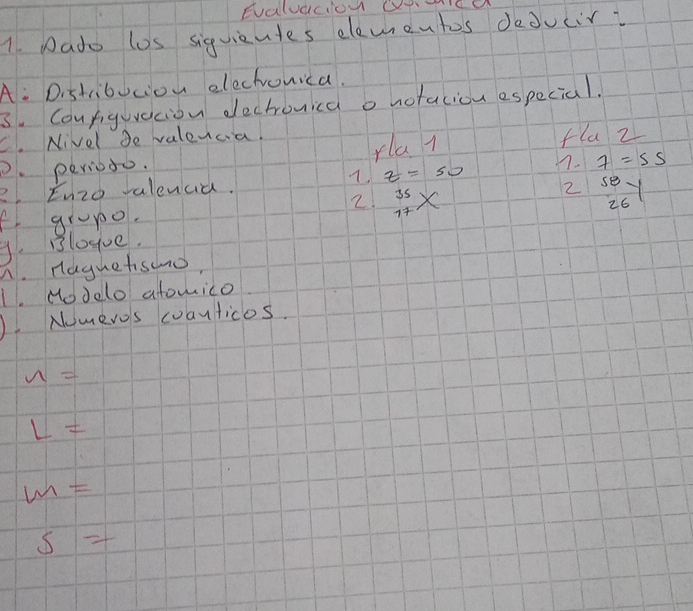 Evaluacion
1. Dado los siguientes elementos deducir:
A: Distribucion electronica.
B. Configuracion electronica o notacion especial.
C. Nivel de valencia.
D. periodo.
E. Enzo valencia.
f. grupo.
g. Bloque.
h. Magnetismo.
I. Modelo atomico
J. Numeros cuanticos.
fla 1
1. z = 50
2. 35 17 X
fla 2
1. z = 55
2 58 26 Y
n =
L =
m =
s =